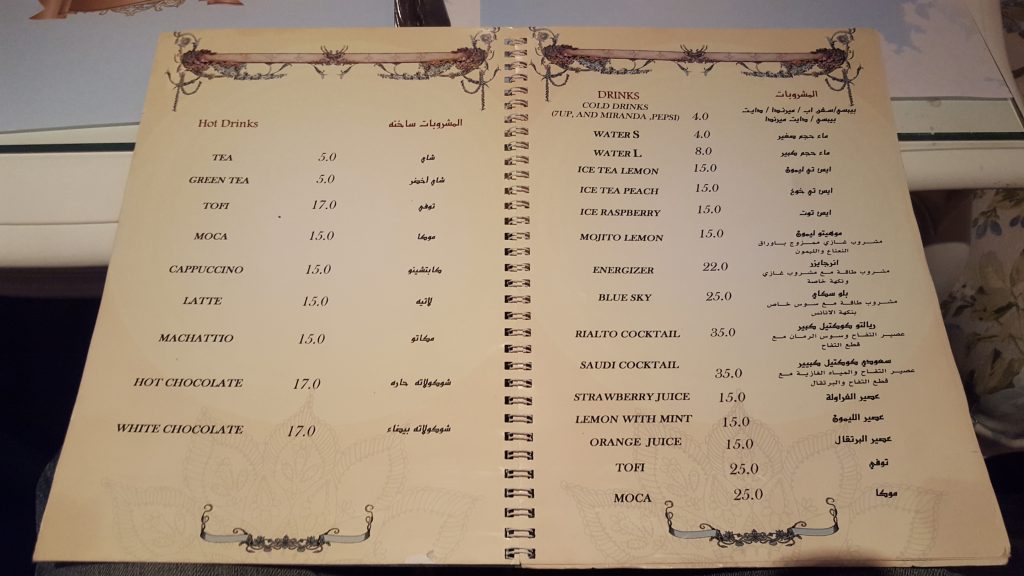 Hot Drinks المشروبات ساخنه
TEA 5.0 شاي
GREEN TEA 5.0 شاي أخضر
TOFI 17.0 توفي
MOCA 15.0 موكا
CAPPUCCINO 15.0 كابتشينو
LATTE 15.0 لاتيه
MACHATTIO 15.0 مكاتو
HOT CHOCOLATE 17.0 شوكولاته حاره
WHITE CHOCOLATE 17.0 شوكولاته بيضاء
DRINKS المشروبات
COLD DRINKS بيبسي/سفن اب / ميرندا / دايت
(7UP, AND MIRANDA ,PEPSI) 4.0 بيبسي / دايت ميرندا
WATER S 4.0 ماء حجم صغير
WATER L 8.0 ماء حجم كبير
ICE TEA LEMON 15.0 ايس تي ليمون
ICE TEA PEACH 15.0 ايس تي خوخ
ICE RASPBERRY 15.0 ايس توت
MOJITO LEMON 15.0 موهيتو ليمون
مشروب غازي ممزوج باوراق
النعناع والليمون
ENERGIZER 22.0 انرجايزر
مشروب طاقة مع مشروب غازي
ونكهة خاصة
BLUE SKY 25.0 بلو سكاي
مشروب طاقة مع سوس خاص
بنكهة الاناناس
RIALTO COCKTAIL 35.0 ريالتو كوكتيل كبير
عصير التفاح وسوس الرمان مع
قطع التفاح
SAUDI COCKTAIL 35.0 سعودي كوكتيل كبيير
عصير التفاح والمياه الغازية مع
قطع التفاح والبرتقال
STRAWBERRY JUICE 15.0 عصير الفراولة
LEMON WITH MINT 15.0 عصير الليمون
ORANGE JUICE 15.0 عصير البرتقال
TOFI 25.0 توفي
MOCA 25.0 موكا